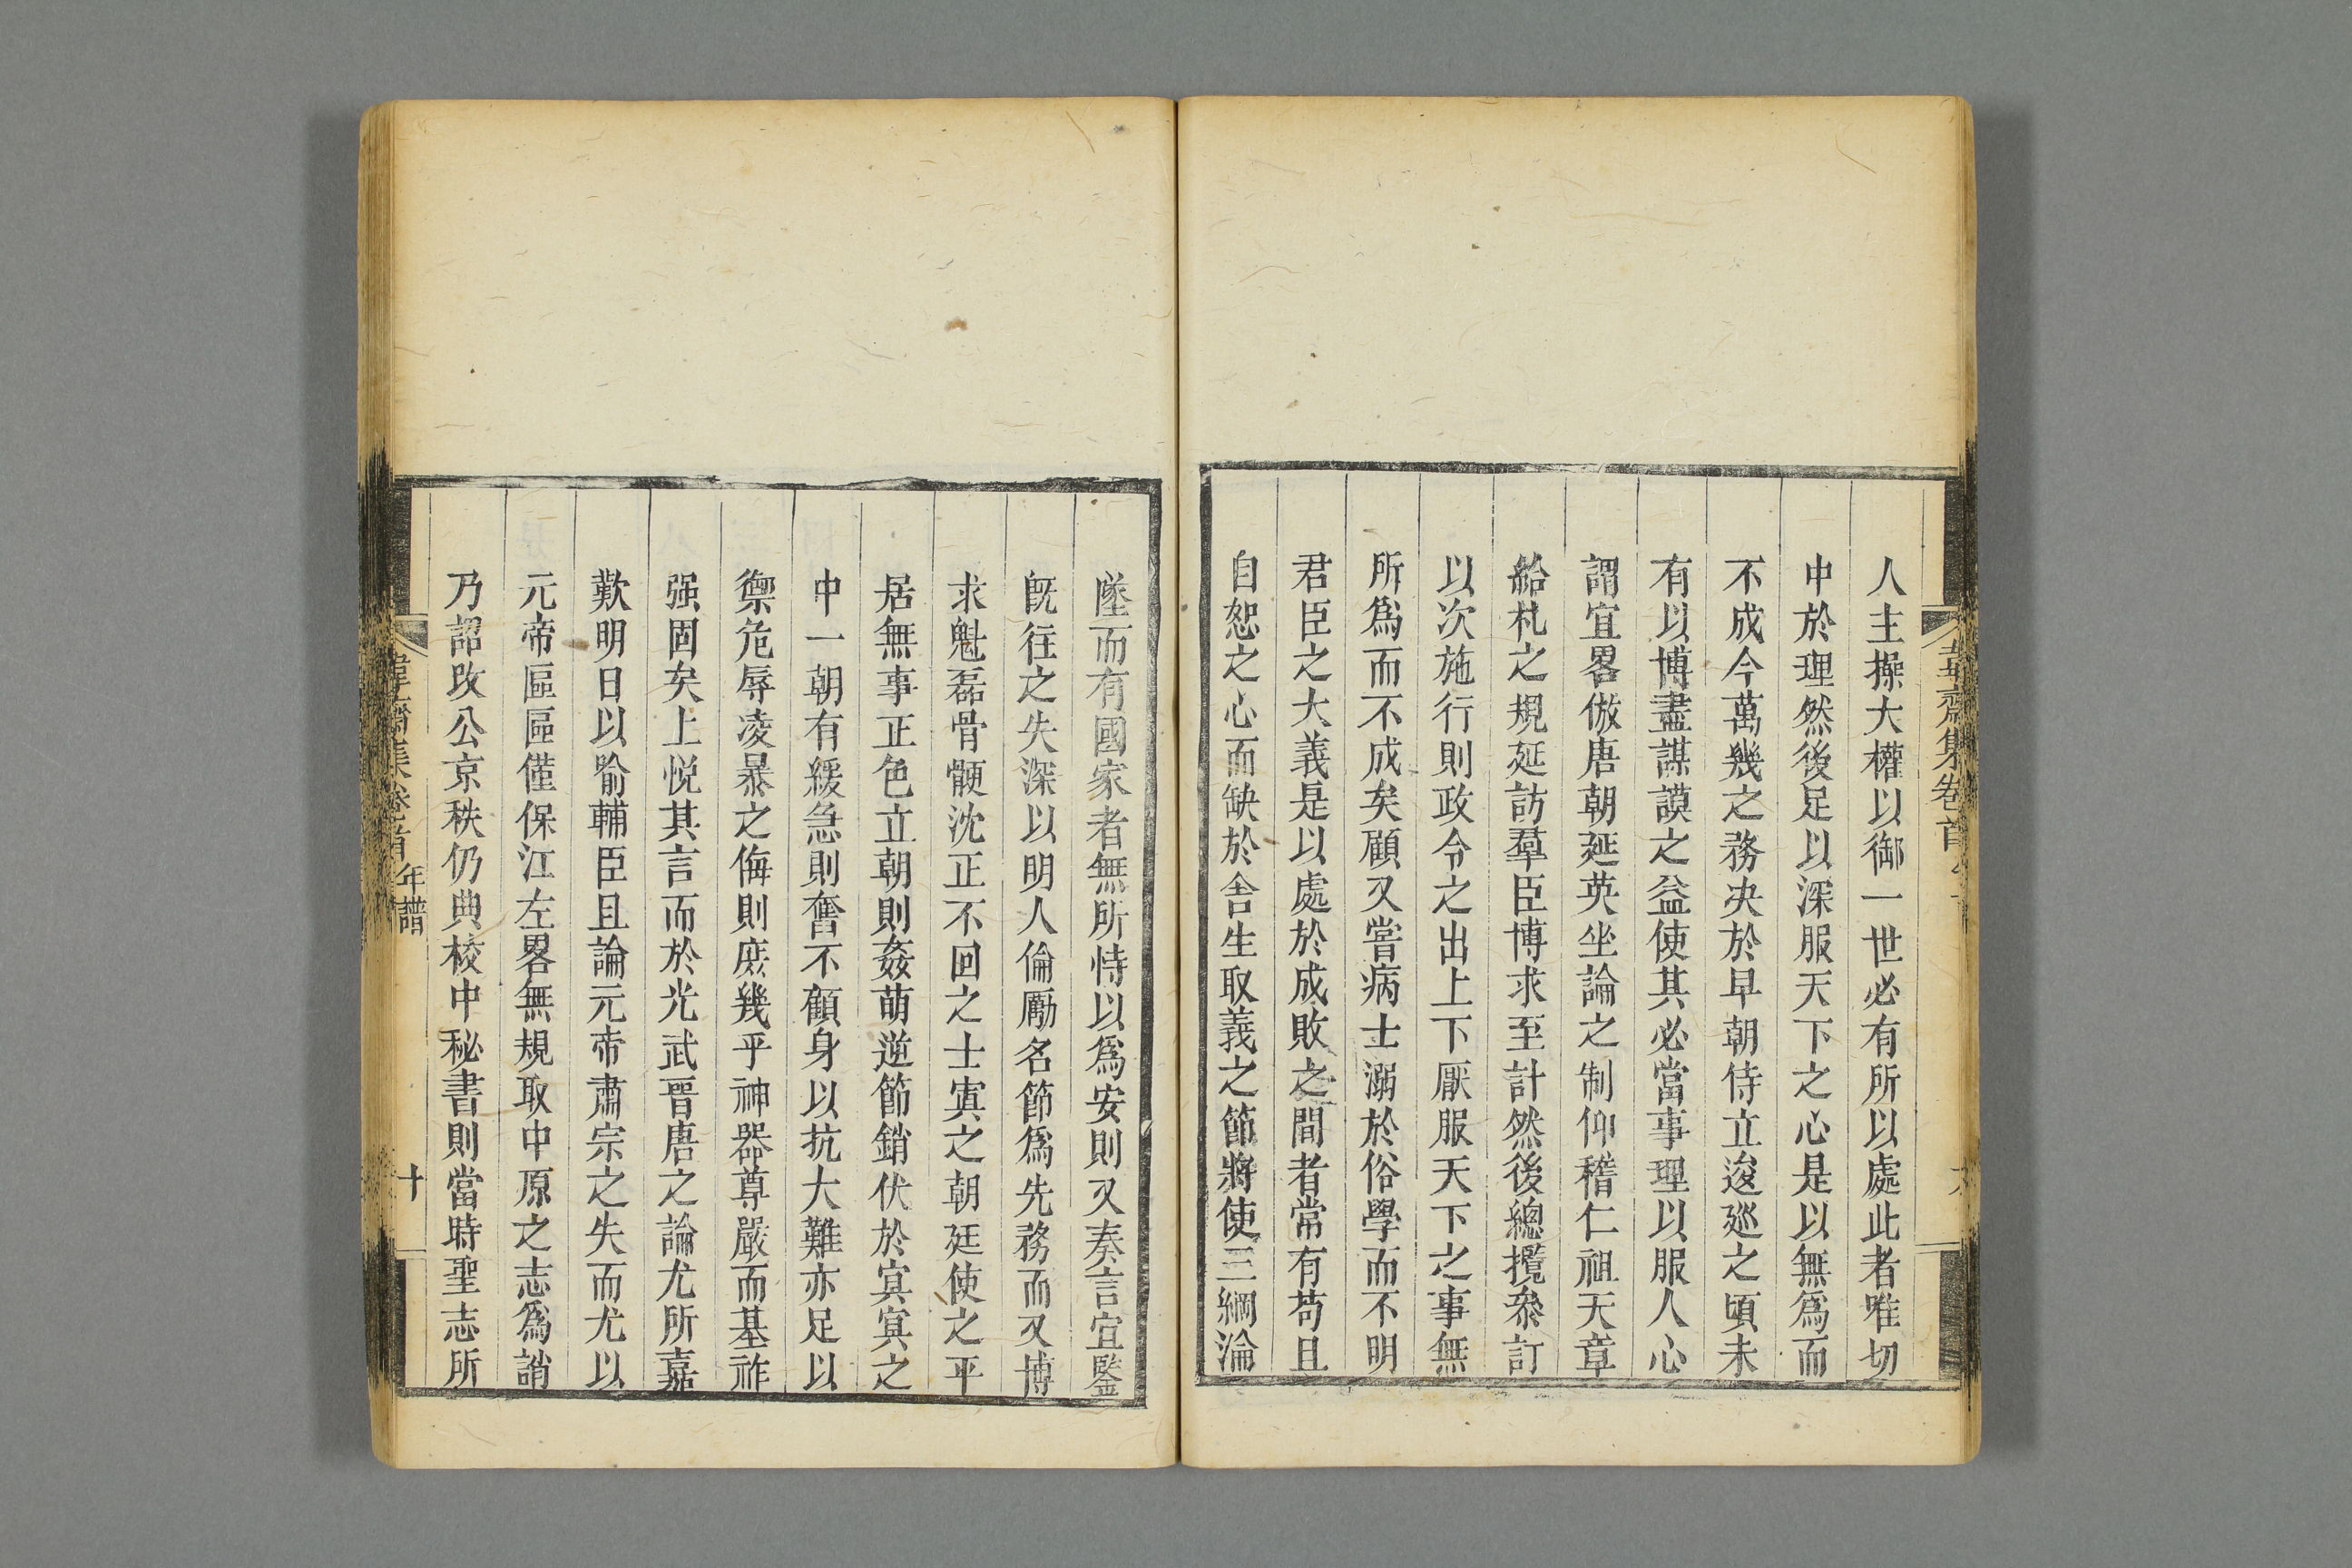 人主操大權以御一世必有所以處此者唯切
中於理然後足以深服天下之心是以無爲而
不成今萬幾之務决於早朝侍立逡廵之頃未
有以博盡謀謨之益使其必當事理以服人心
謂宜畧倣唐朝延英坐論之制仰稽仁祖天章
給札之規延訪羣臣博求至計然後總攬叅訂
以次施行則政令之出上下厭服天下之事無
所爲而不成矣顧又嘗病士溺於俗學而不明
君臣之大義是以處於成敗之間者常有苟且
自恕之心而缺於舍生取義之節將使三綱淪
墜而有國家者無所恃以爲安則又奏言宜監
旣往之失深以明人倫勵名節爲先務而又博
求魁磊骨鯁沈正不回之士寘之朝廷使之平
居無事正色立朝則姦萌逆節銷伏於冥冥之
中一朝有緩急則奮不顧身以抗大難亦足以
禦危辱凌暴之侮則庶幾乎神器尊嚴而基祚
强固矣上悦其言而於光武晋唐之論尤所嘉
歎明日以喻輔臣且論元帝肅宗之失而尤以
元帝區區僅保江左畧無規取中原之志爲誚
乃詔改公京秩仍典校中秘書則當時聖志所
韋齋集卷首
年譜
十